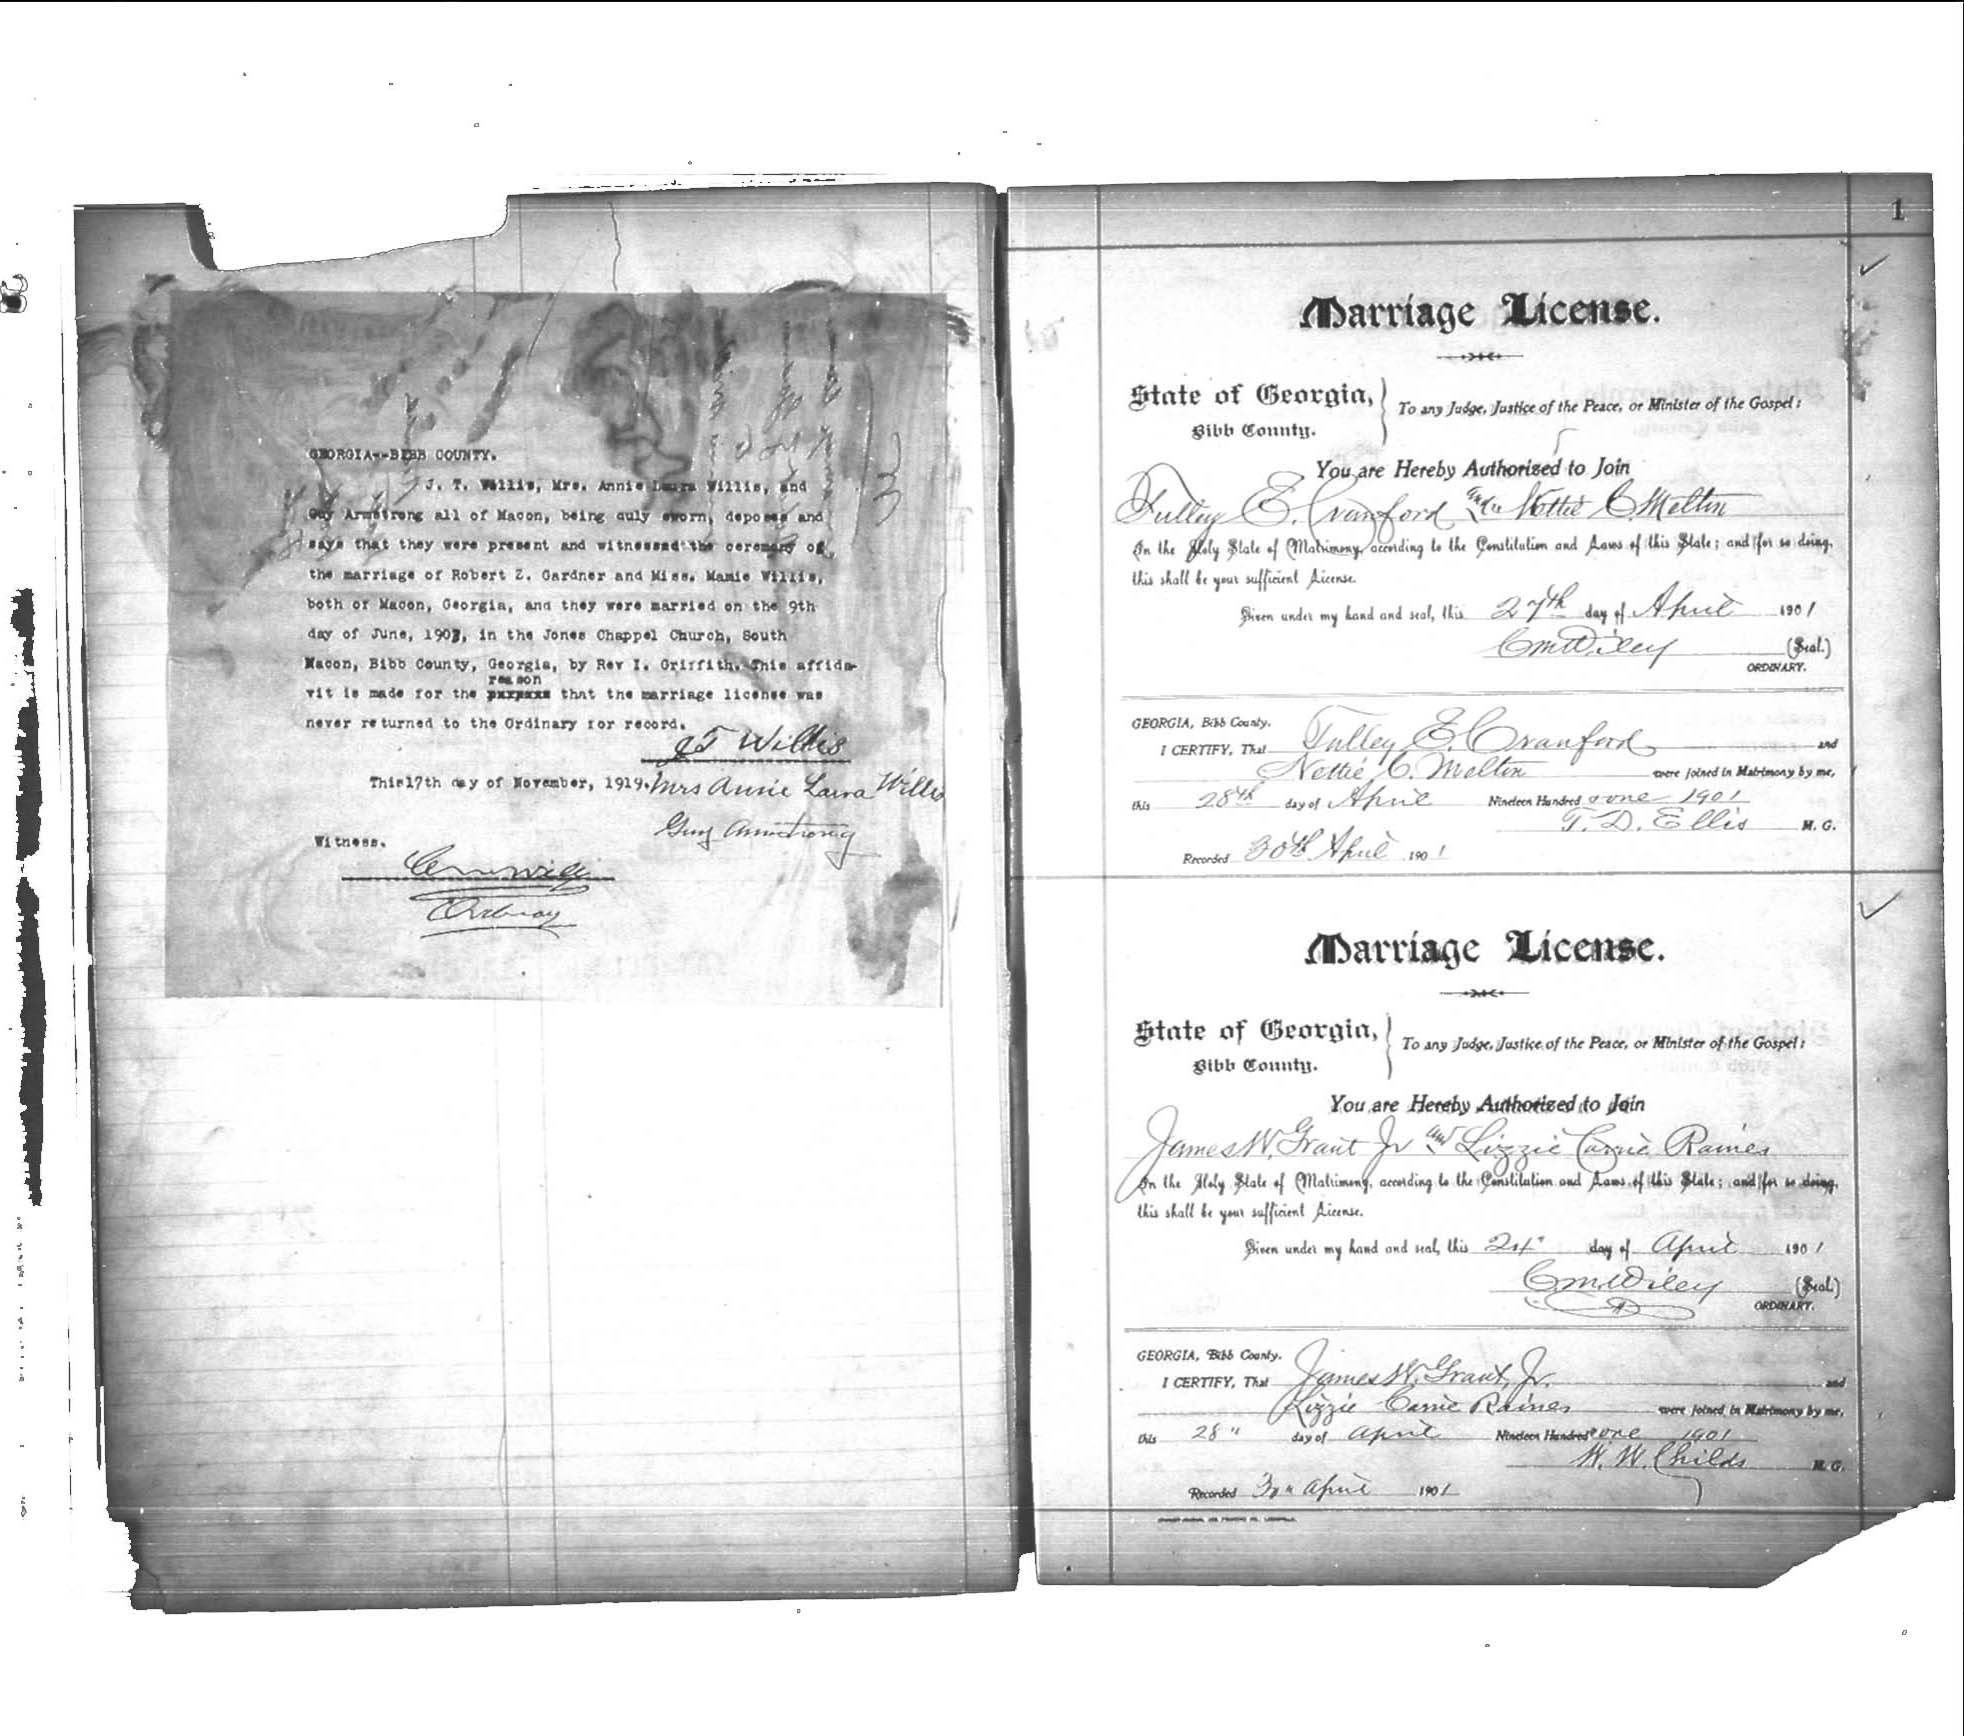 GEORGIA--BIBB COUNTY.
J. T. Willis, Mrs. Annie Laura Willis, and
Guy Armstrong all of Macon, being duly sworn, deposes and
says that they were present and witnessed the ceremony of
the marriage of Robert Z. Gardner and Miss. Mamie Willis,
both of Macon, Georgia, and they were married on the 9th
day of June, 1907, in the Jones Chappel Church, South
Macon, Bibb County, Georgia, by Rev I. Griffith. This affida-
reason
vit is made for the that the marriage license was
never returned to the Ordinary for record.
J T Willis
This 17th day of November, 1919. Mrs Annie Laura Willis
Guy Armstrong
Witness.
C M Wiley
Ordinary
1
Marriage License.
State of Georgia,
Bibb County.
To any Judge, Justice of the Peace, or Minister of the Gospel:
You are Hereby Authorized to Join
Tulley E. Cranford and Nettie C. Melton
In the Holy State of Matrimony, according to the Constitution and Laws of this State; and for so doing,
this shall be your sufficient License.
Given under my hand and seal, this 27th day of April 1901
C.M. Wiley (Seal.)
ORDINARY.
GEORGIA, Bibb County.
I CERTIFY, That Tulley E. Cranford and
Nettie C. Melton were joined in Matrimony by me,
this 28th day of April Nineteen Hundred one 1901
T. D. Ellis M. G.
Recorded 30th April 1901
Marriage License.
State of Georgia,
Bibb County.
To any Judge, Justice of the Peace, or Minister of the Gospel:
You are Hereby Authorized to Join
James W. Grant Jr and Lizzie Carrie Raines
In the Holy State of Matrimony, according to the Constitution and Laws of this State; and for so doing,
this shall be your sufficient License.
Given under my hand and seal, this 24" day of April 1901
C.M. Wiley (Seal.)
ORDINARY.
GEORGIA, Bibb County.
I CERTIFY, That James W. Grant, Jr. and
Lizzie Carrie Raines were joined in Matrimony by me,
this 28" day of April Nineteen Hundred one 1901
W. W. Childs M. G.
Recorded 30" April 1901